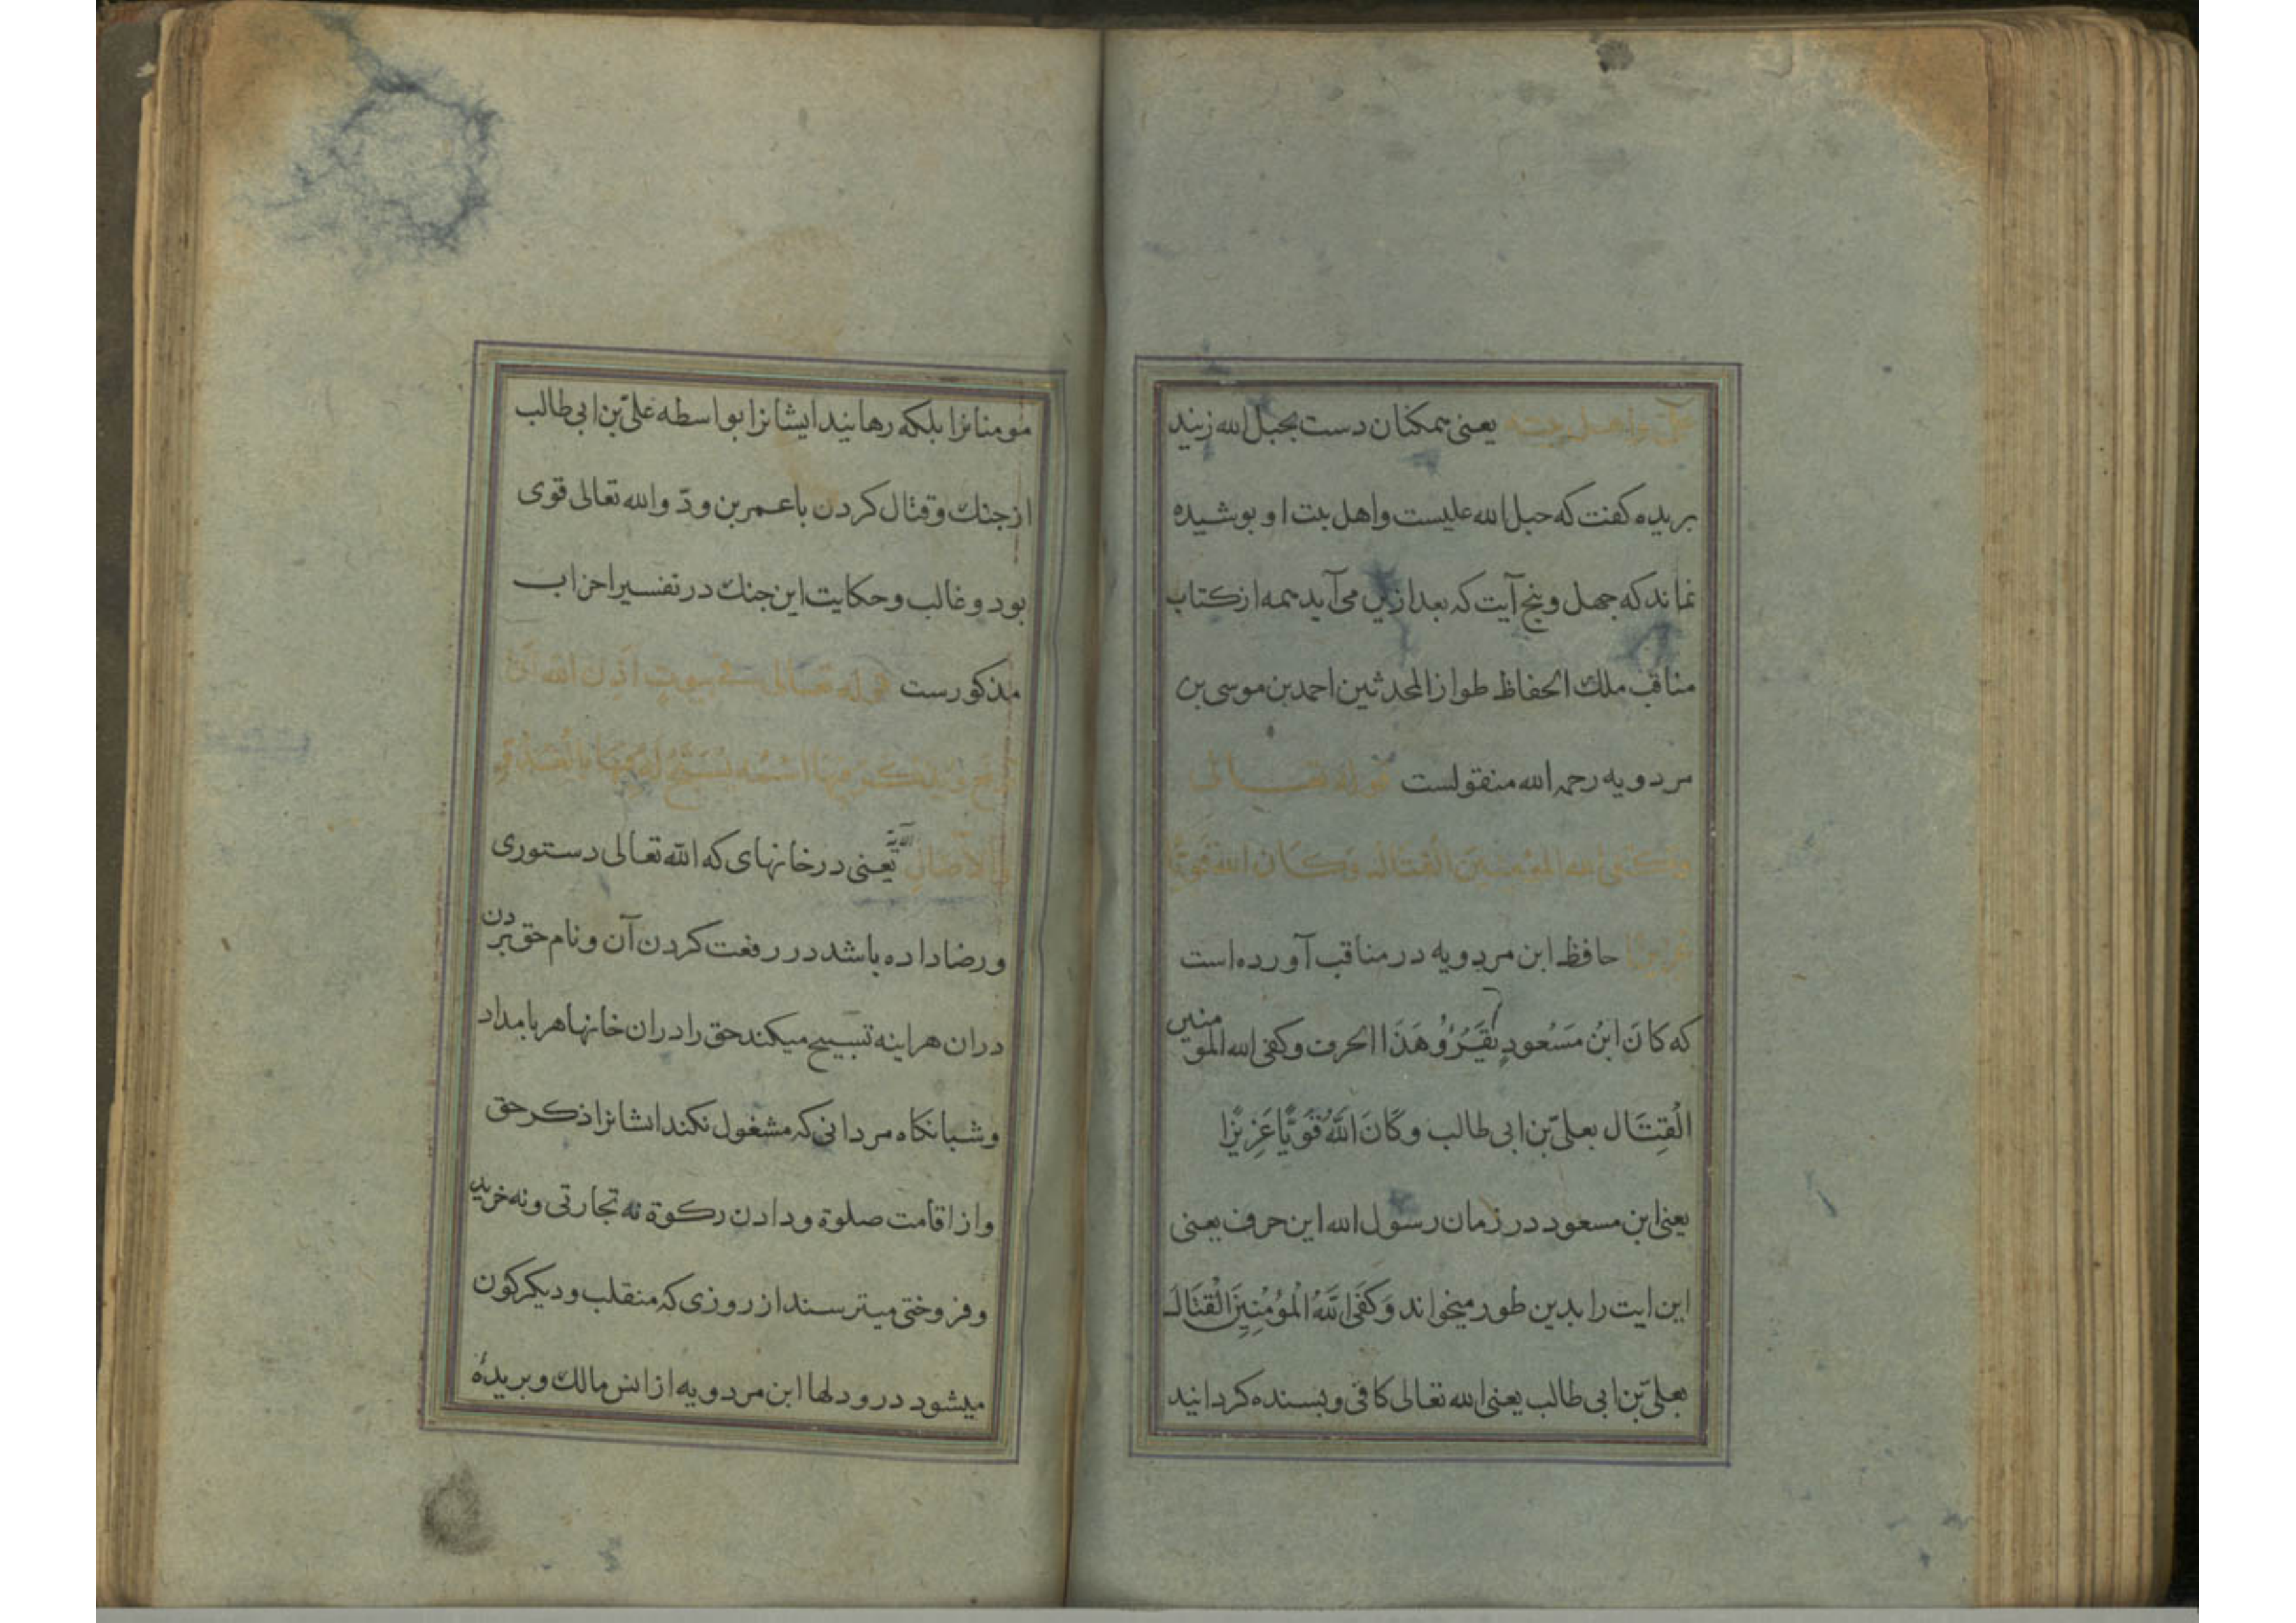 علی و اهل بیته یعنی همکنان دست بحبل الله زنید
بریده کفت که حبل الله علیست و اهل بیت او پوشیده
نماند که جهل و پنج آیت که بعد ازین می آید همه از کتاب
مناقب ملك الحفاظ طواز المحدثین احمد بن موسی بن
مردویه رحمه الله منقولست قوله تعالی
وَكَفَى الله المؤمِنینَ الْقتَالَ وَكَانَ الله قَوِیًّا
عَزیزًا حافظ ابن مردویه در مناقب آورده است
که كَانَ ابْنُ مَسْعُودٍ یَقْرَؤُ هَذَا الحرف وكفی الله المومنین
الْقِتَال بعلیّ بن ابی طالب وكَانَ اللَّهُ قَوِیًّا عَزِیزًا
یعنی ابن مسعود در زمان رسول الله این حرف یعنی
این ایت را بدین طور میخواند وَكَفَى اللَّهُ الْمُؤْمِنِینَ الْقتَالَ
بعلیّ بن ابی طالب یعنی الله تعالی کافی و بسنده کردانید
مومنانرا بلکه رهانید ایشانرا بواسطه علیّ بن ابی طالب
از جنك و قتال کردن با عمر بن ودّ و الله تعالی قوی
بود و غالب و حکایت این جنك در تفسیر احزاب
مذکورست قوله تعالی فی بیوتٍ اَذِنَ الله اَنْ
تُرْفَعَ وَیُذْكَرَ فیهَا اسْمُه یُسَبِّحُ لَهُ فِیهَا بِالْغُدُوِّ
وَالْآصَالِ الآیة یعنی در خانهای که الله تعالی دستوری
و رضا داده باشد در رفعت کردن آن و نام حق بردن
دران هراینه تسبیح میکند حق را دران خانها هر بامداد
و شبانکاه مردانی که مشغول نکند ایشانرا ذکر حق
و از اقامت صلوة و دادن زکوة نه تجارتی و نه خرید
و فروختی میترسند از روزی که منقلب و دیکرکون
میشود درو دلها ابن مردویه از انس مالك و بریده